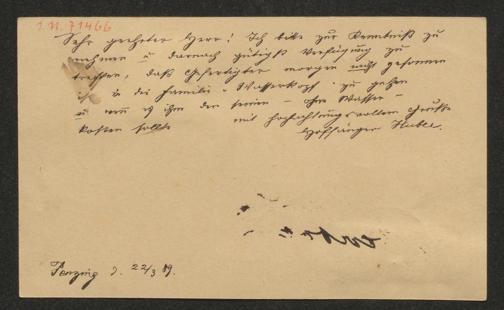 I.N. 71466
Sehr geehrter Herr! Ich bitte zur Kenntniß zu
nehmen u darnach gütigst Verfügung zu
treffen, daß Gefertigter morgen nicht gesonnen
ist in die Familie "Wasserkopf" zu gehen
u wenn es ihm den – ohne Wasser –
kosten sollte
mit hochachtungsvollem Gruße
Hofsänger
Penzing d. 22/3 89.